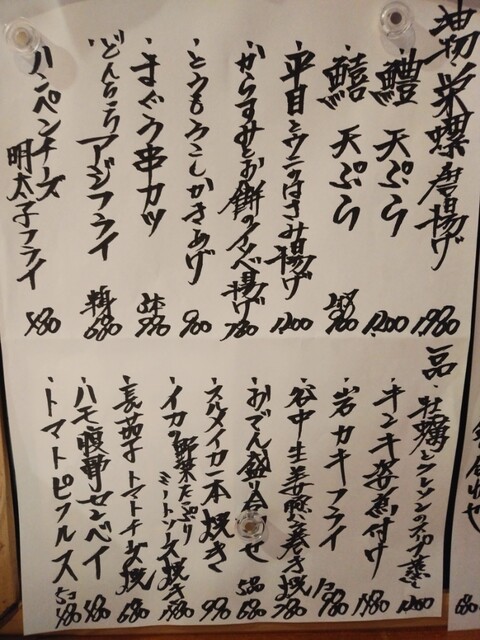 油物・栄螺唐揚げ 1,980
・鱧 天ぷら 1,200
・鱚 天ぷら 2枚 700
・平目とウニのはさみ揚げ 1,200
・からすみとお餅のイソベ揚げ 780
・とうもろこしかきあげ 900
・まぐろ串カツ 2本 770
・どんちっちアジフライ 半身 680
・ハンペンチーズ明太子フライ 580
一品・牡蠣とクレソンの
・キンキ姿煮付け 1,980
・岩カキフライ 1コ 980
・谷中生姜 巻き焼 780
・おでん盛り合せ 5品 680
・スルメイカ一本焼き 990
・イカの野菜たっぷりミートソース焼き
・長茄子トマトチーズ焼 680
・ハモ センベイ 580
・トマトピクルス 5コ 480